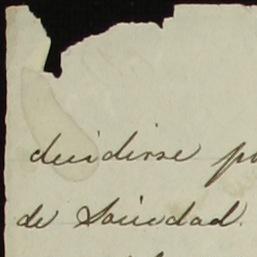 decidirse p
de Sociedad.